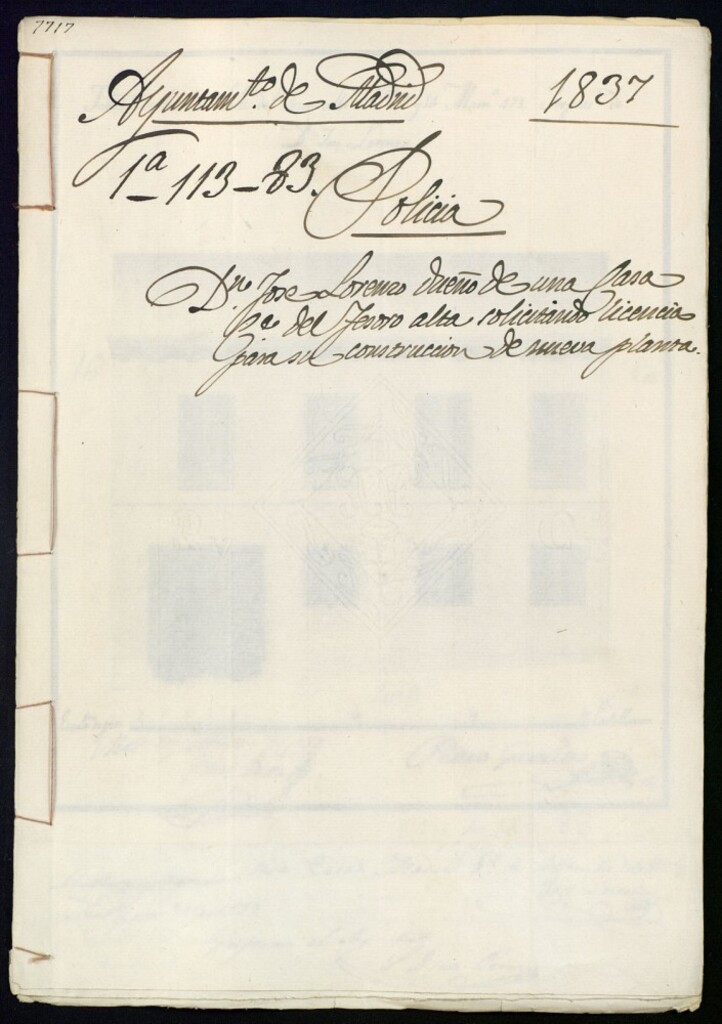 7717
Ayuntamto. de Madrid 1837
1ª 113-83. Policia
Dn. Jose Lorenzo dueño de una Casa
Ce. del Tesoro alta solicitando licencia
para su construccion de nueva planta.